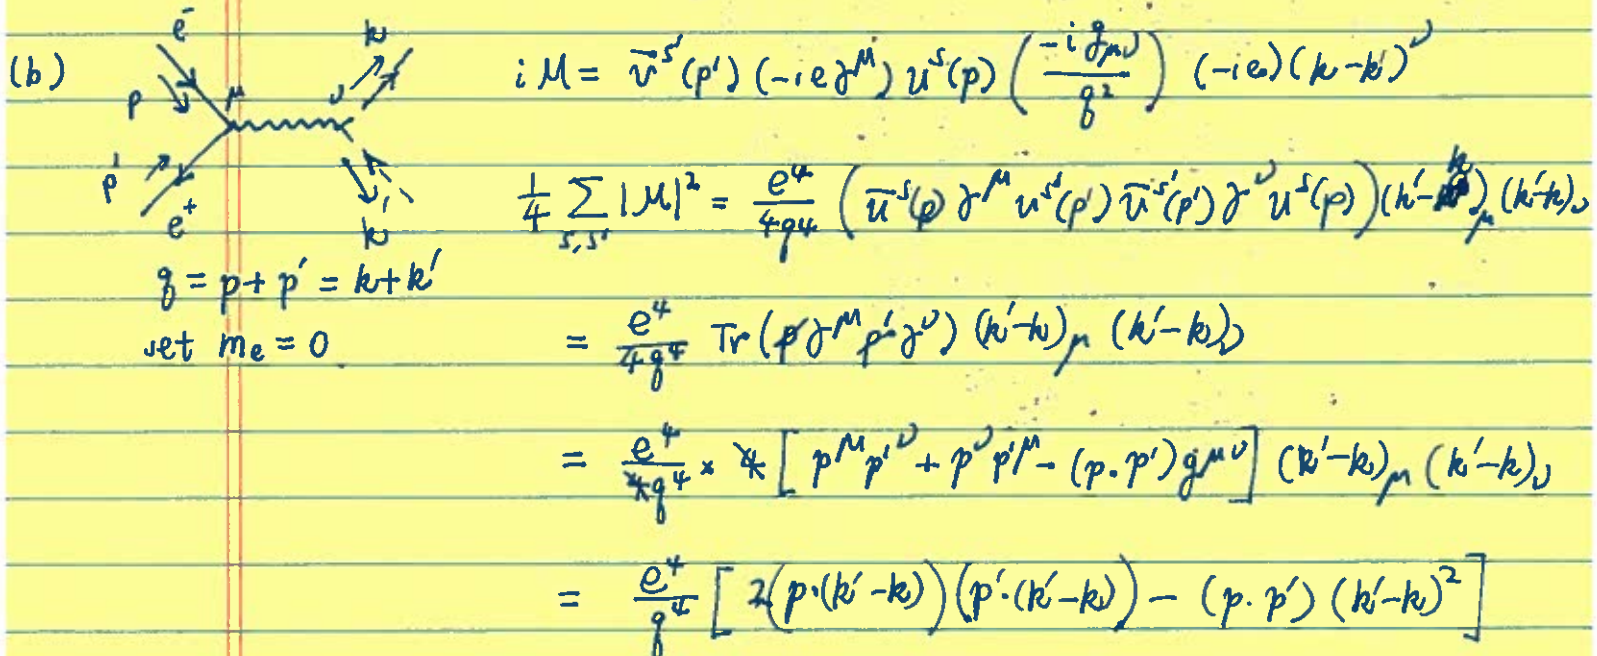 (b)
e⁻ p μ ν k
p' e⁺ k'
q = p + p' = k + k'
set mₑ = 0
iM = v̄^{s'}(p') (-ieγ^μ) u^s(p) (-i g_{μν} / q²) (-ie)(k-k')^ν
1/4 Σ_{s,s'} |M|² = e⁴/4q⁴ (ū^s(p) γ^μ u^{s'}(p') ū^{s'}(p') γ^ν u^s(p)) (k'-k)_μ (k'-k)_ν
= e⁴/4q⁴ Tr(p̸ γ^μ p̸' γ^ν) (k'-k)_μ (k'-k)_ν
= e⁴/4q⁴ × 4 [p^μ p'^ν + p^ν p'^μ - (p·p')g^{μν}] (k'-k)_μ (k'-k)_ν
= e⁴/q⁴ [2(p·(k'-k))(p'·(k'-k)) - (p·p')(k'-k)²]